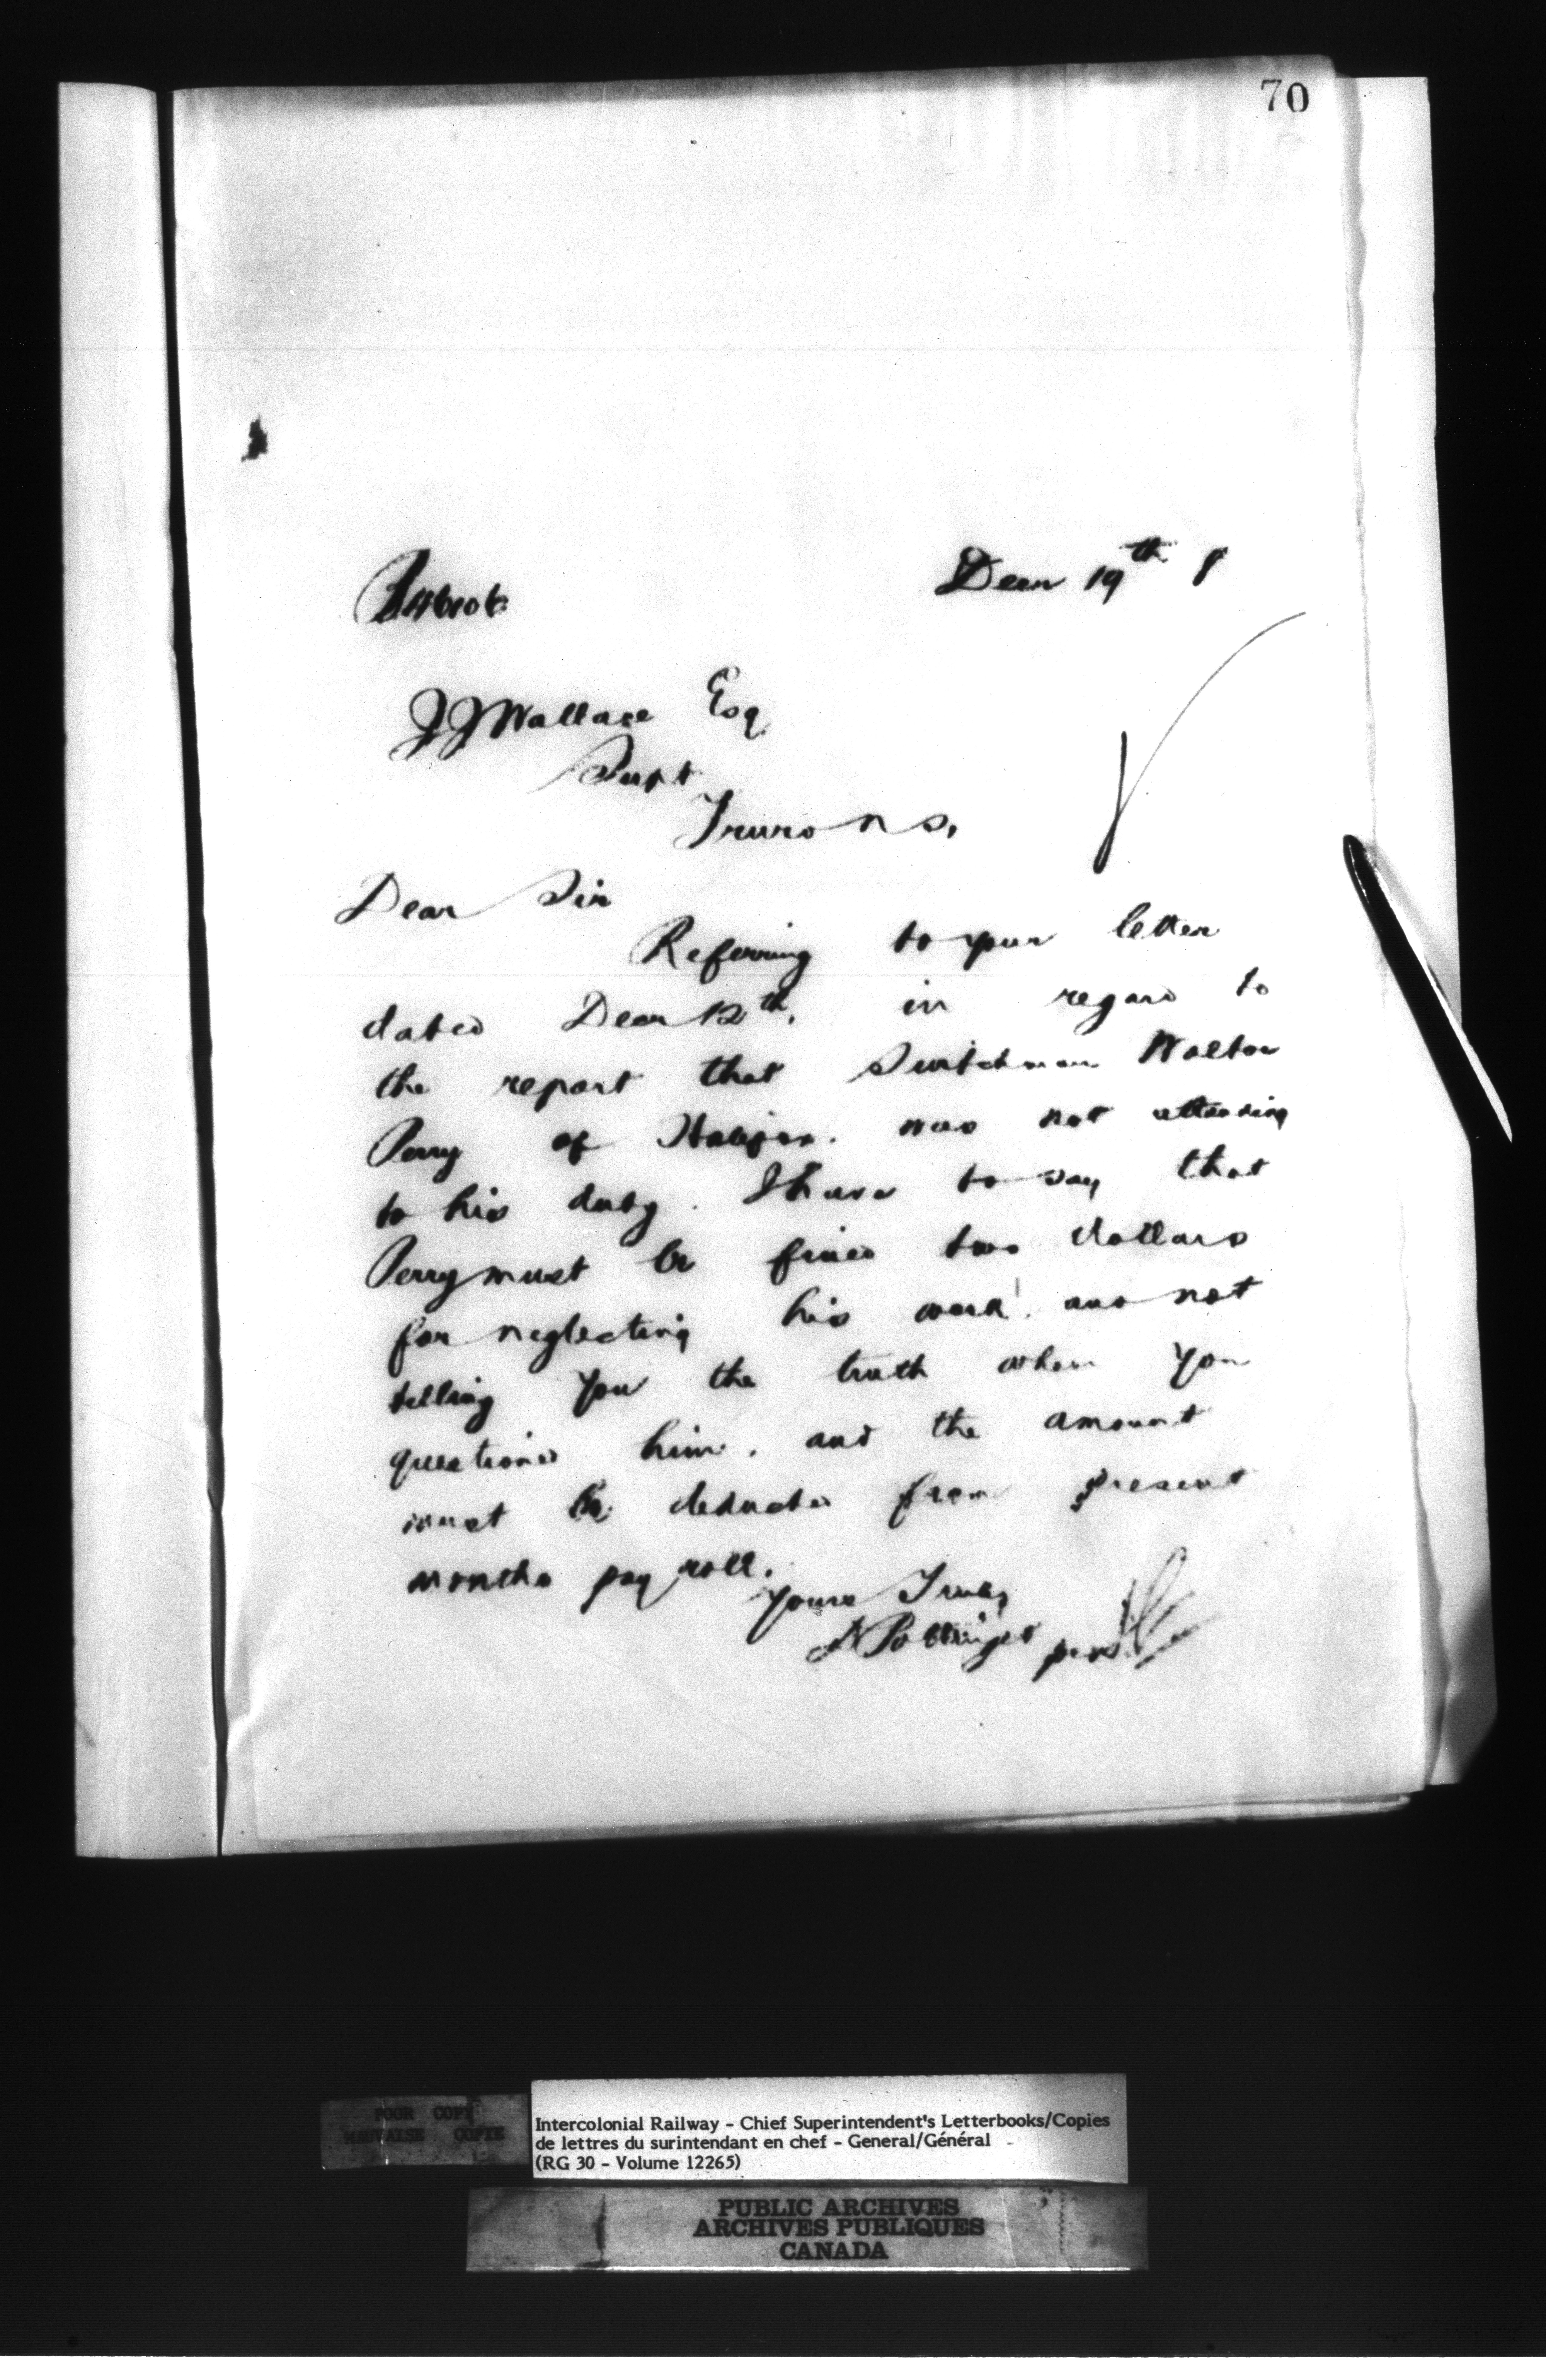 70
Decr 19th 8
J J Wallace Esq
Supt
Truro N S,
Dear Sir
Referring to your letter
dated Decr 12th, in regard to
the report that Switchman Walton
Perry of Halifax. was not attending
to his duty. I have to say that
Perry must be fined two dollars
for neglecting his work. and not
telling you the truth when you
questioned him. and the amount
must be deducted from present
months pay roll.
Yours Truly
D Pottinger per
POOR COPY
MAUVAISE COPIE
Intercolonial Railway - Chief Superintendent's Letterbooks/Copies
de lettres du surintendant en chef - General/Général
(RG 30 - Volume 12265)
PUBLIC ARCHIVES
ARCHIVES PUBLIQUES
CANADA